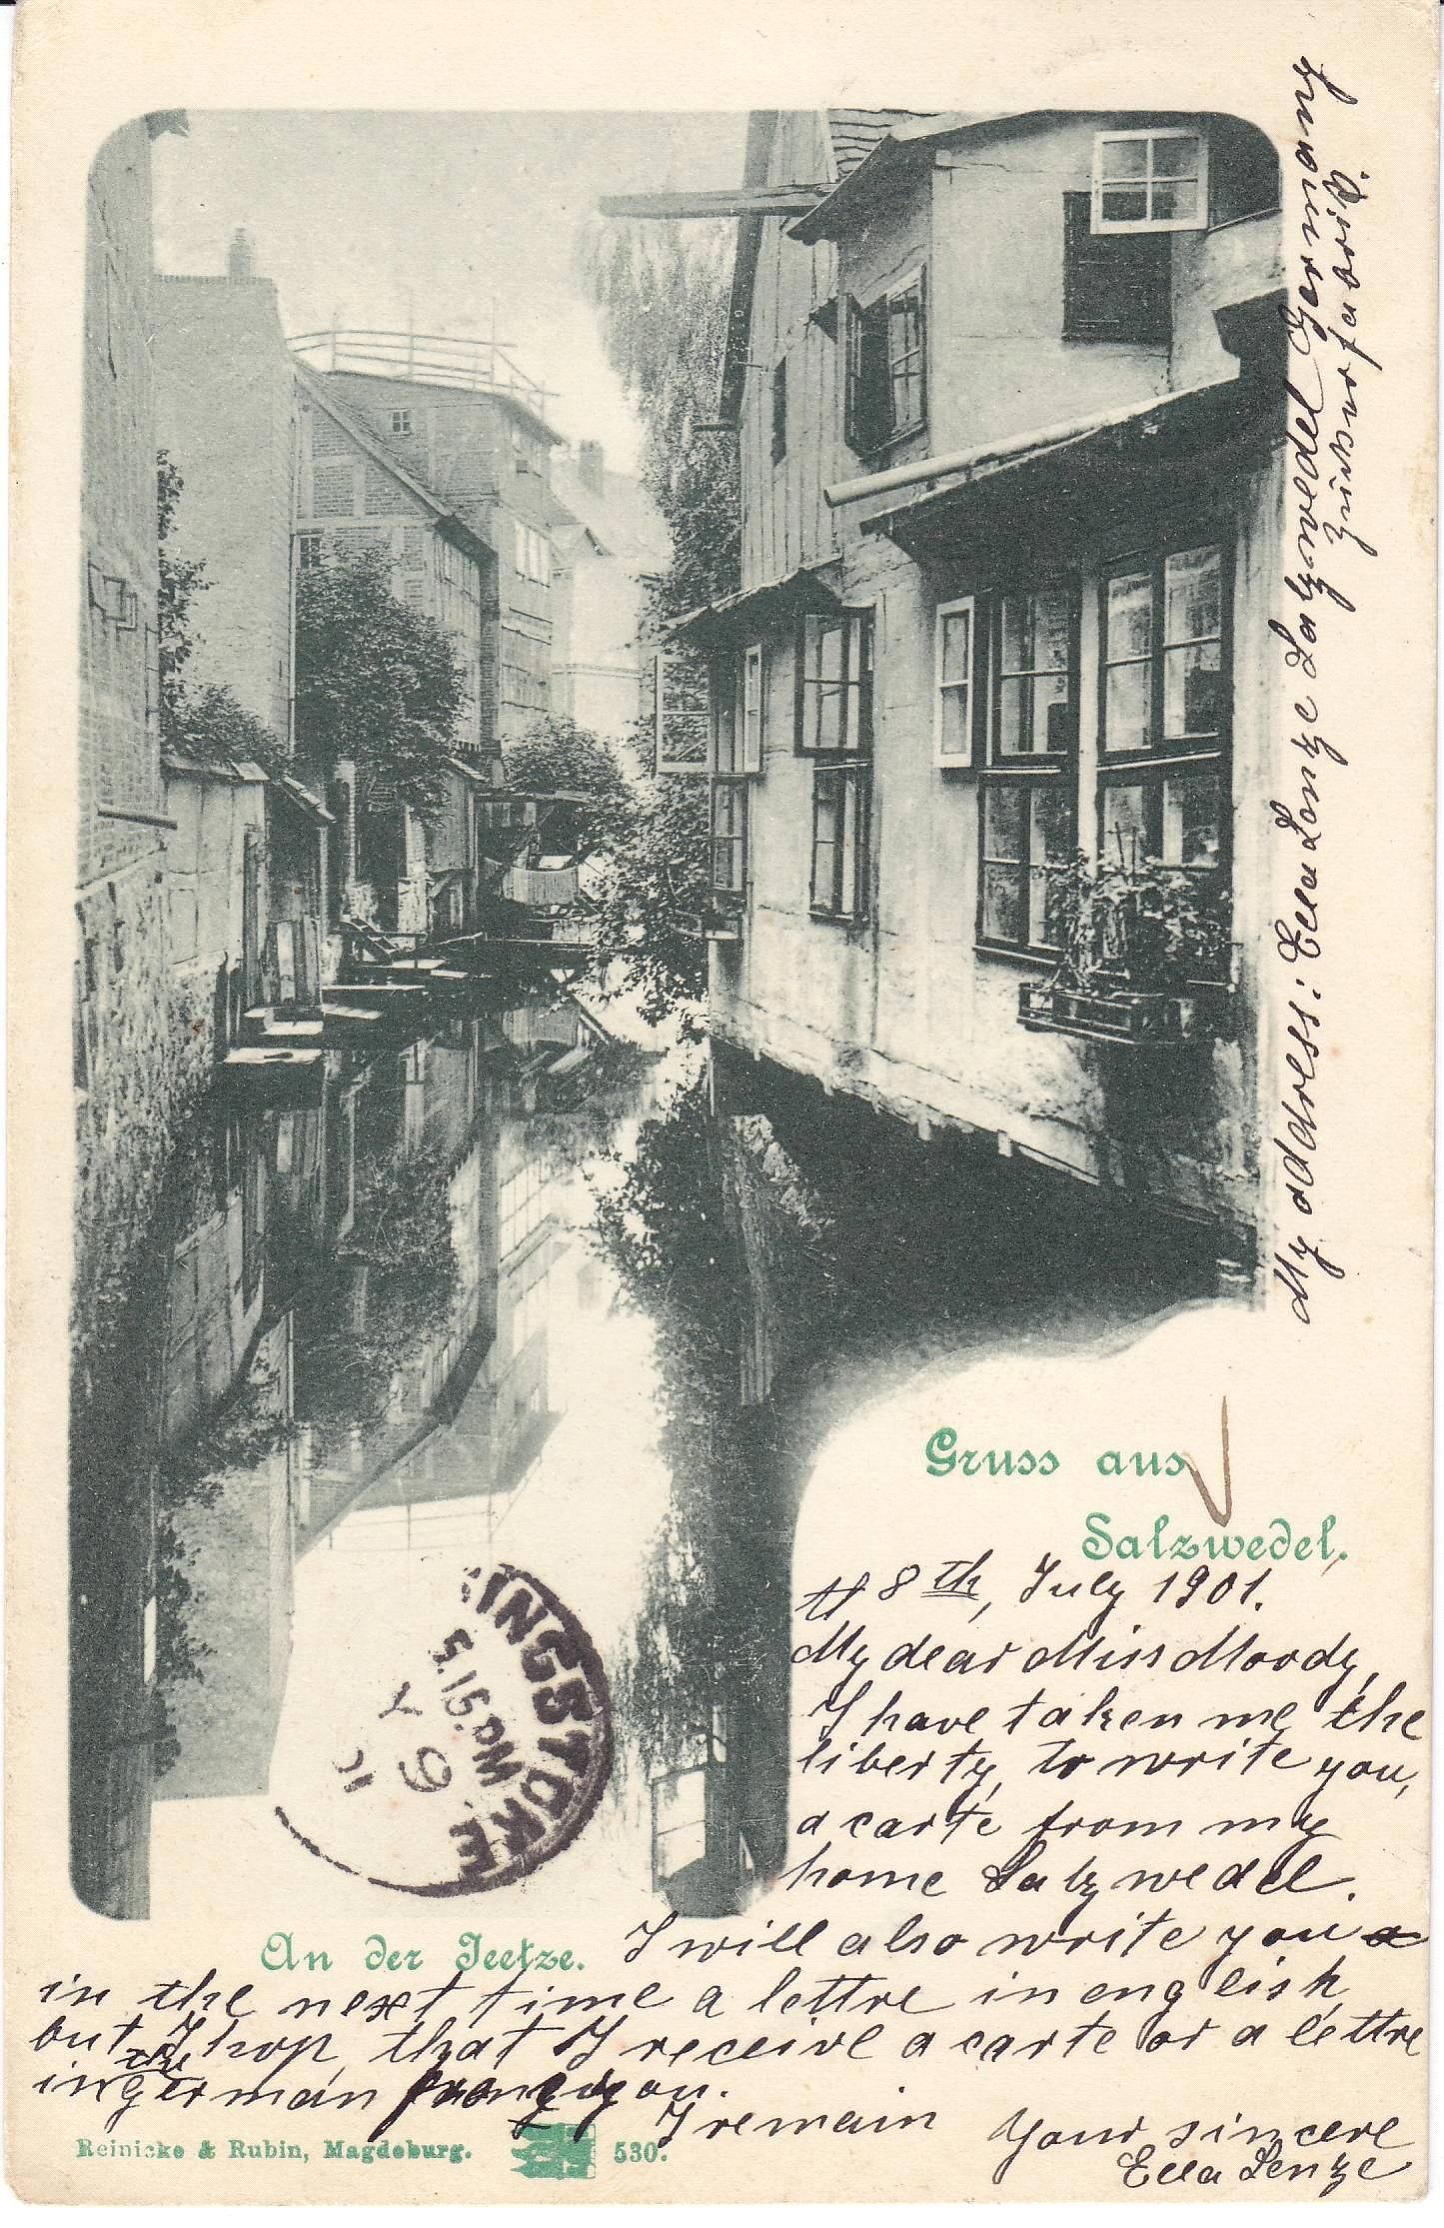 My address: Ella Lenze Salzwedel Germany
Zuckerfabrik.
Gruss aus
Salzwedel.
8th, July 1901.
My dear Miss Moody,
I have taken me the
liberty, to write you,
a carte from my
home Salzwedel.
An der Jeetze.
I will also write you a
in the next time a lettre in english,
but I hop, that I receive a carte or a lettre
in the german from you.
I remain
Your sincere
Ella Lenze
Reinicke & Rubin, Magdeburg.
530.
INGSTOKE
5.15 PM
JY 9
01